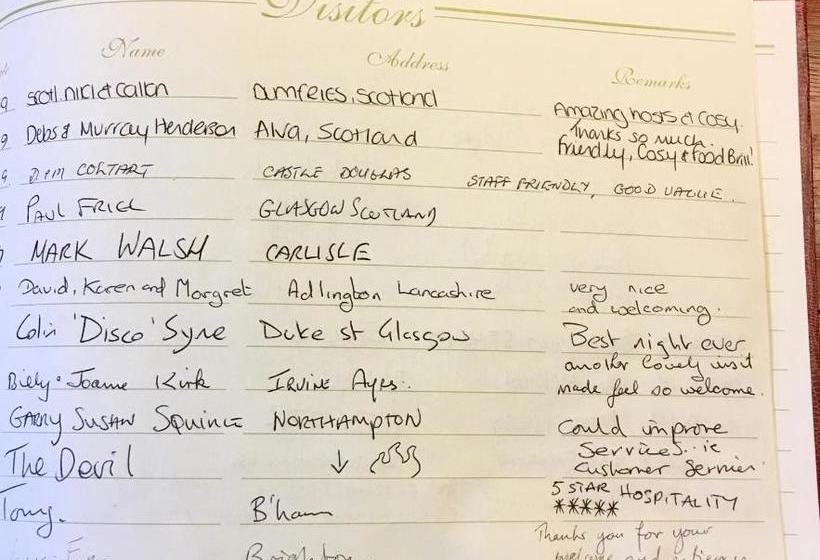 Visitors
Name Address Remarks
9 Scott, Nicki & Callan Dumfries, Scotland Amazing hosts & Cosy.
Thanks so much.
9 Debs & Murray Henderson Alva, Scotland Friendly, Cosy & Food Brill!
CASTLE DOUGLAS STAFF FRIENDLY, GOOD VALUE.
PAUL GLASGOW SCOTLAND
MARK WALSH CARLISLE
David, Karen and Margret Adlington Lancashire very nice
and welcoming.
Colin 'Disco' Syne Duke st Glasgow Best night ever
another lovely visit
Joanne Kirk IRVINE Ayrs.. made feel so welcome.
GARRY SUSAN SQUIRES NORTHAMPTON Could improve
Services.. ie
The Devil ↓ Customer Service
5 STAR HOSPITALITY
Tony. B'ham *****
Thanks you for your
Brighton welcome